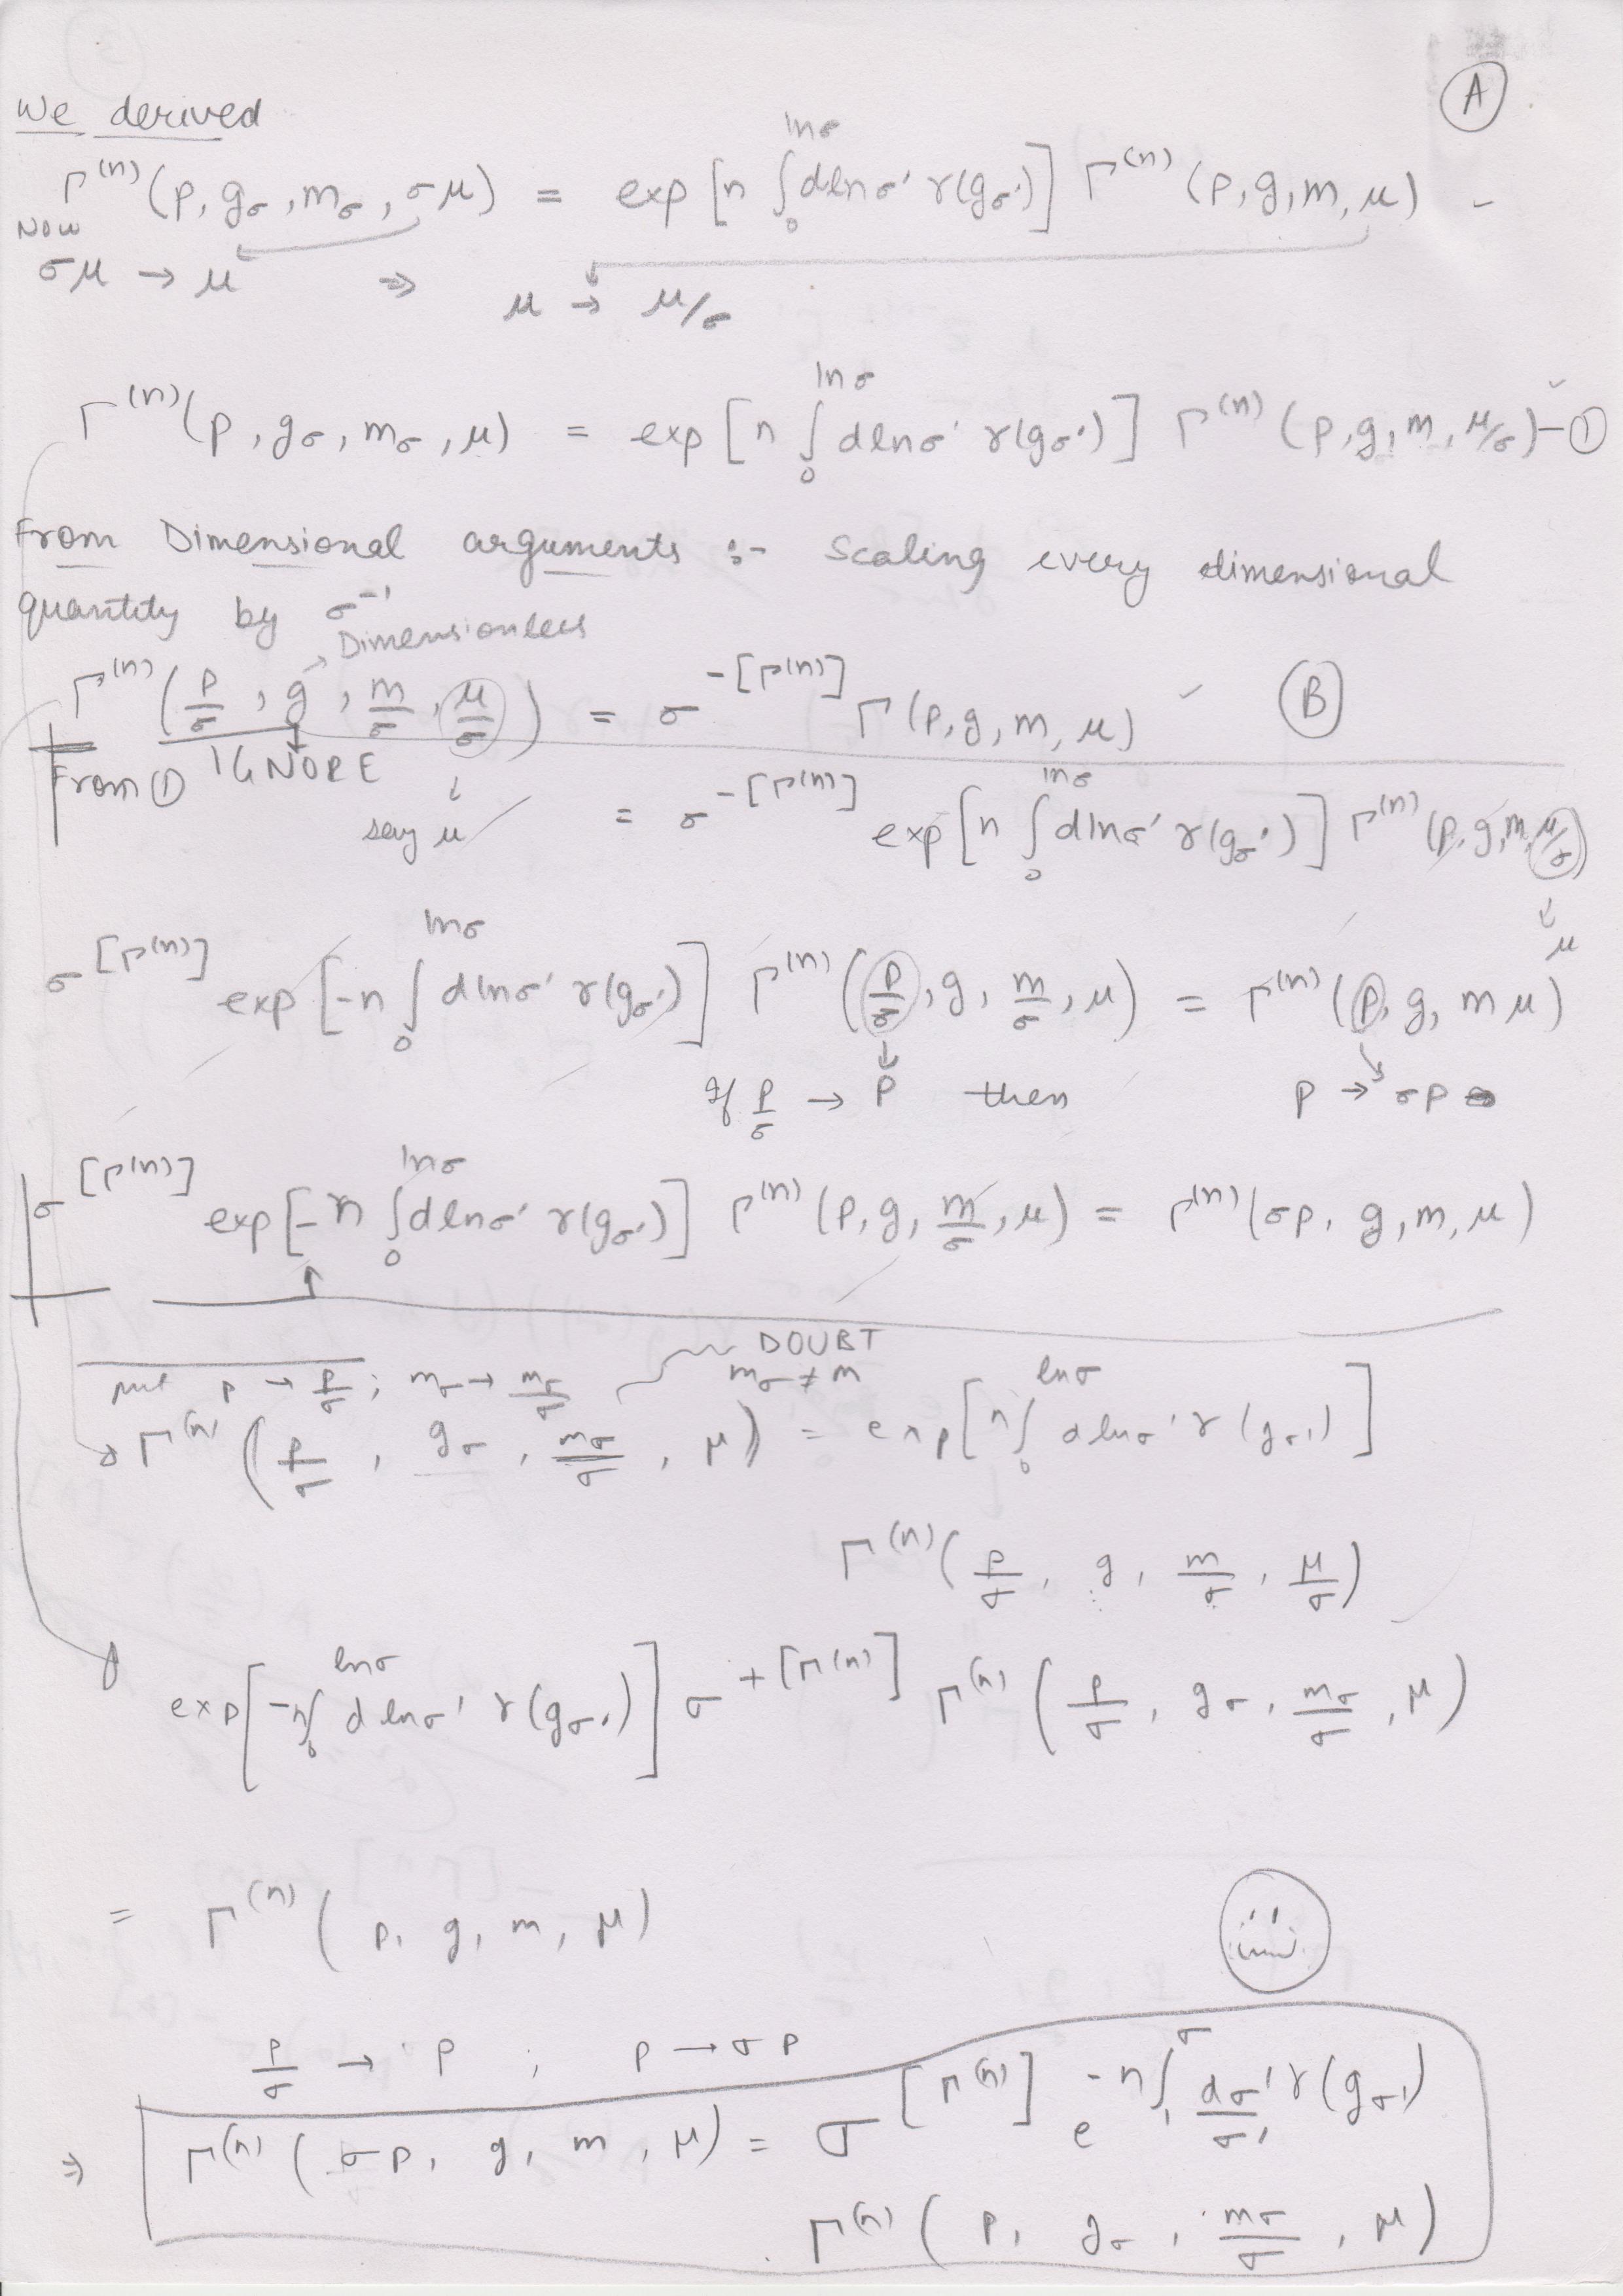 A
We derived
Γ^(n)(p, g_σ, m_σ, σμ) = exp[n ∫_0^{lnσ} dlnσ' γ(g_σ')] Γ^(n)(p, g, m, μ) -
NOW
σμ → μ ⇒ μ → μ/σ
Γ^(n)(p, g_σ, m_σ, μ) = exp[n ∫_0^{lnσ} dlnσ' γ(g_σ')] Γ^(n)(p, g, m, μ/σ) - ①
From Dimensional arguments :- Scaling every dimensional
quantity by σ^-1
→ Dimensionless
Γ^(n)(p/σ, g, m/σ, μ/σ) = σ^-[Γ(n)] Γ(p, g, m, μ) Ⓑ
From ① IGNORE
say μ
= σ^-[Γ(n)] exp[n ∫_0^{lnσ} dlnσ' γ(g_σ')] Γ^(n)(p, g, m, μ/σ)
↓ μ
σ^[Γ(n)] exp[-n ∫_0^{lnσ} dlnσ' γ(g_σ')] Γ^(n)(p/σ, g, m/σ, μ) = Γ^(n)(p, g, m μ)
If p/σ → p then p → σp
σ^[Γ(n)] exp[-n ∫_0^{lnσ} dlnσ' γ(g_σ')] Γ^(n)(p, g, m/σ, μ) = Γ^(n)(σp, g, m, μ)
DOUBT
put p → p/σ ; m_σ → m_σ/σ m_σ ≠ m
Γ^(n)(p/σ, g_σ, m_σ/σ, μ) = exp[n∫_0^{lnσ} dlnσ' γ(g_σ')]
Γ^(n)(p/σ, g, m/σ, μ/σ)
exp[-n∫_0^{lnσ} dlnσ' γ(g_σ')] σ^+[Γ(n)] Γ^(n)(p/σ, g_σ, m_σ/σ, μ)
= Γ^(n)(p, g, m, μ)
p/σ → p ; p → σp
⇒ Γ^(n)(σp, g, m, μ) = σ^[Γ^(n)] e^{-n∫_1^σ dσ'/σ' γ(g_σ')}
Γ^(n)(p, g_σ, m_σ/σ, μ)